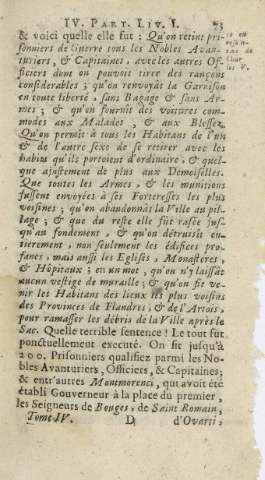 IV. PART. LIV. I. 73
& voici quelle elle fut : Qu'on retint pri-
sonniers de Guerre tous les Nobles Avan-
turiers, & Capitaines, avec les autres Of-
ficiers dont on pouvoit tirer des rançons
considerables ; qu'on renvoyât la Garnison
en toute liberté, sans Bagage & sans Ar-
mes ; & qu'on fournit des voitures com-
modes aux Malades, & aux Blessez.
Qu'on permit à tous les Habitans de l'un
& de l'autre sexe de se retirer avec les
habits qu'ils portoient d'ordinaire, & quel-
que ajustement de plus aux Demoiselles.
Que toutes les Armes, & les munitions
fussent envoyées à ses Forteresses les plus
voisines ; qu'on abandonnât la Ville au pil-
lage ; & que du reste elle fut rasée jus-
qu'au fondement, & qu'on détruisit en-
tierement, non seulement les édifices pro-
fanes, mais aussi les Eglises, Monasteres,
& Hôpitaux ; en un mot, qu'on n'y laissât
aucun vestige de muraille ; & qu'on fit ve-
nir les Habitans des lieux les plus voisins
des Provinces de Flandres, & de l'Artois,
pour ramasser les débris de la Ville après le
Sac. Quelle terrible sentence ! Le tout fut
ponctuellement executé. On fit jusqu'à
200. Prisonniers qualifiez parmi les No-
bles Avanturiers, Officiers, & Capitaines;
& entr'autres Montmorenci, qui avoit été
établi Gouverneur à la place du premier,
les Seigneurs de Bouges, de Saint Romain,
Tome IV. D d'Ovarti,